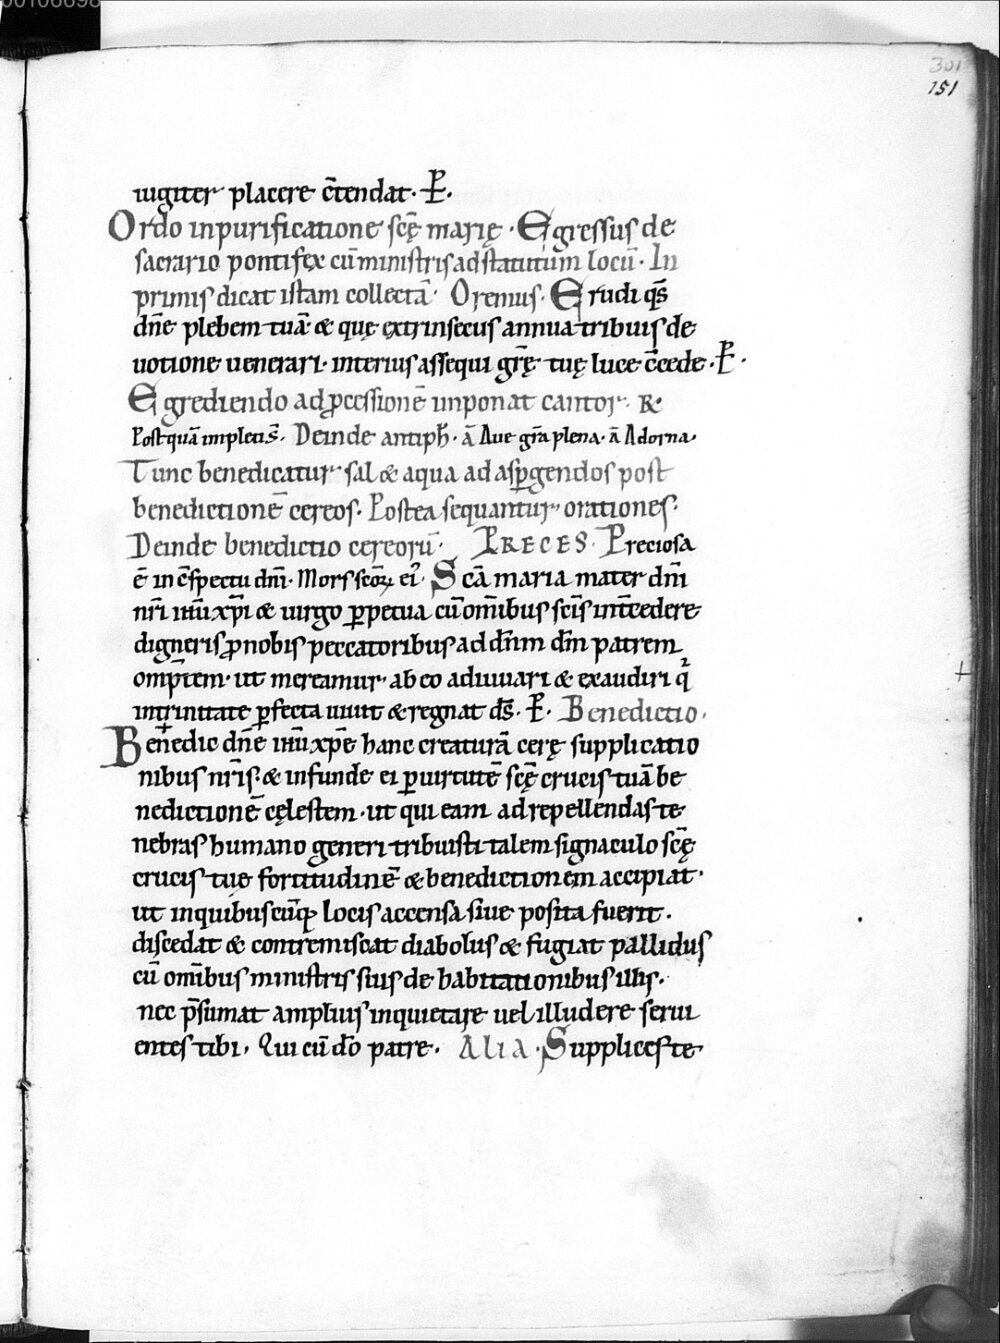 00106698
301
151
iugiter placere c̄tendat · P̱.
Ordo in purificatione sc̄ę marię · Egressus de
sacrario pontifex cū ministris ad statutum locū · In
primis dicat istam collectā · Oremus · Erudi q̄s
dn̄e plebem tuā & quę extrinsecus annua tribuis de
uotione uenerari · interius assequi gr̄ę tuę luce c̄cede · P̱ ·
Egrediendo ad ꝓcessionē inponat cantor · R̷
Postquā impleti s̄ · Deinde antiph̄ · ā Aue gr̄a plena · ā Adorna ·
Tunc benedicatur sal & aqua ad asꝑgendos post
benedictionē cereos · Postea sequantur orationes ·
Deinde benedictio cereorū · PRECES · Preciosa
ē in c̄spectu dn̄i · Mors sc̄oꝝ ei᾿ · Sc̄a maria mater dn̄i
nr̄i ihū xp̄i & uirgo ꝑpetua cū om̄ibus sc̄is int̄cedere
digneris ꝓ nobis peccatoribus ad dn̄m dm̄ patrem
omp̄tem · ut mereamur ab eo adiuuari & exaudiri qͥ
in trinitate ꝑfecta uiuit & regnat ds̄ · P̱ · Benedictio ·
Benedic dn̄e ihū xp̄e hanc creaturā cerę supplicatio
nibus nr̄is · & infunde ei ꝑ uirtutē sc̄ę crucis tuā be
nedictionē cęlestem · ut qui eam ad repellendas te
nebras humano generi tribuisti talem signaculo sc̄ę
crucis tuę fortitudinē & benedictionem accipiat ·
ut in quibuscūq; locis accensa siue posita fuerit ·
discedat & contremiscat diabolus & fugiat pallidus
cū om̄ibus ministris suis de habitationibus illis ·
nec p̄sumat amplius inquietare uel illudere serui
entes tibi · Qui cū dō patre · ALIA · Supplices te